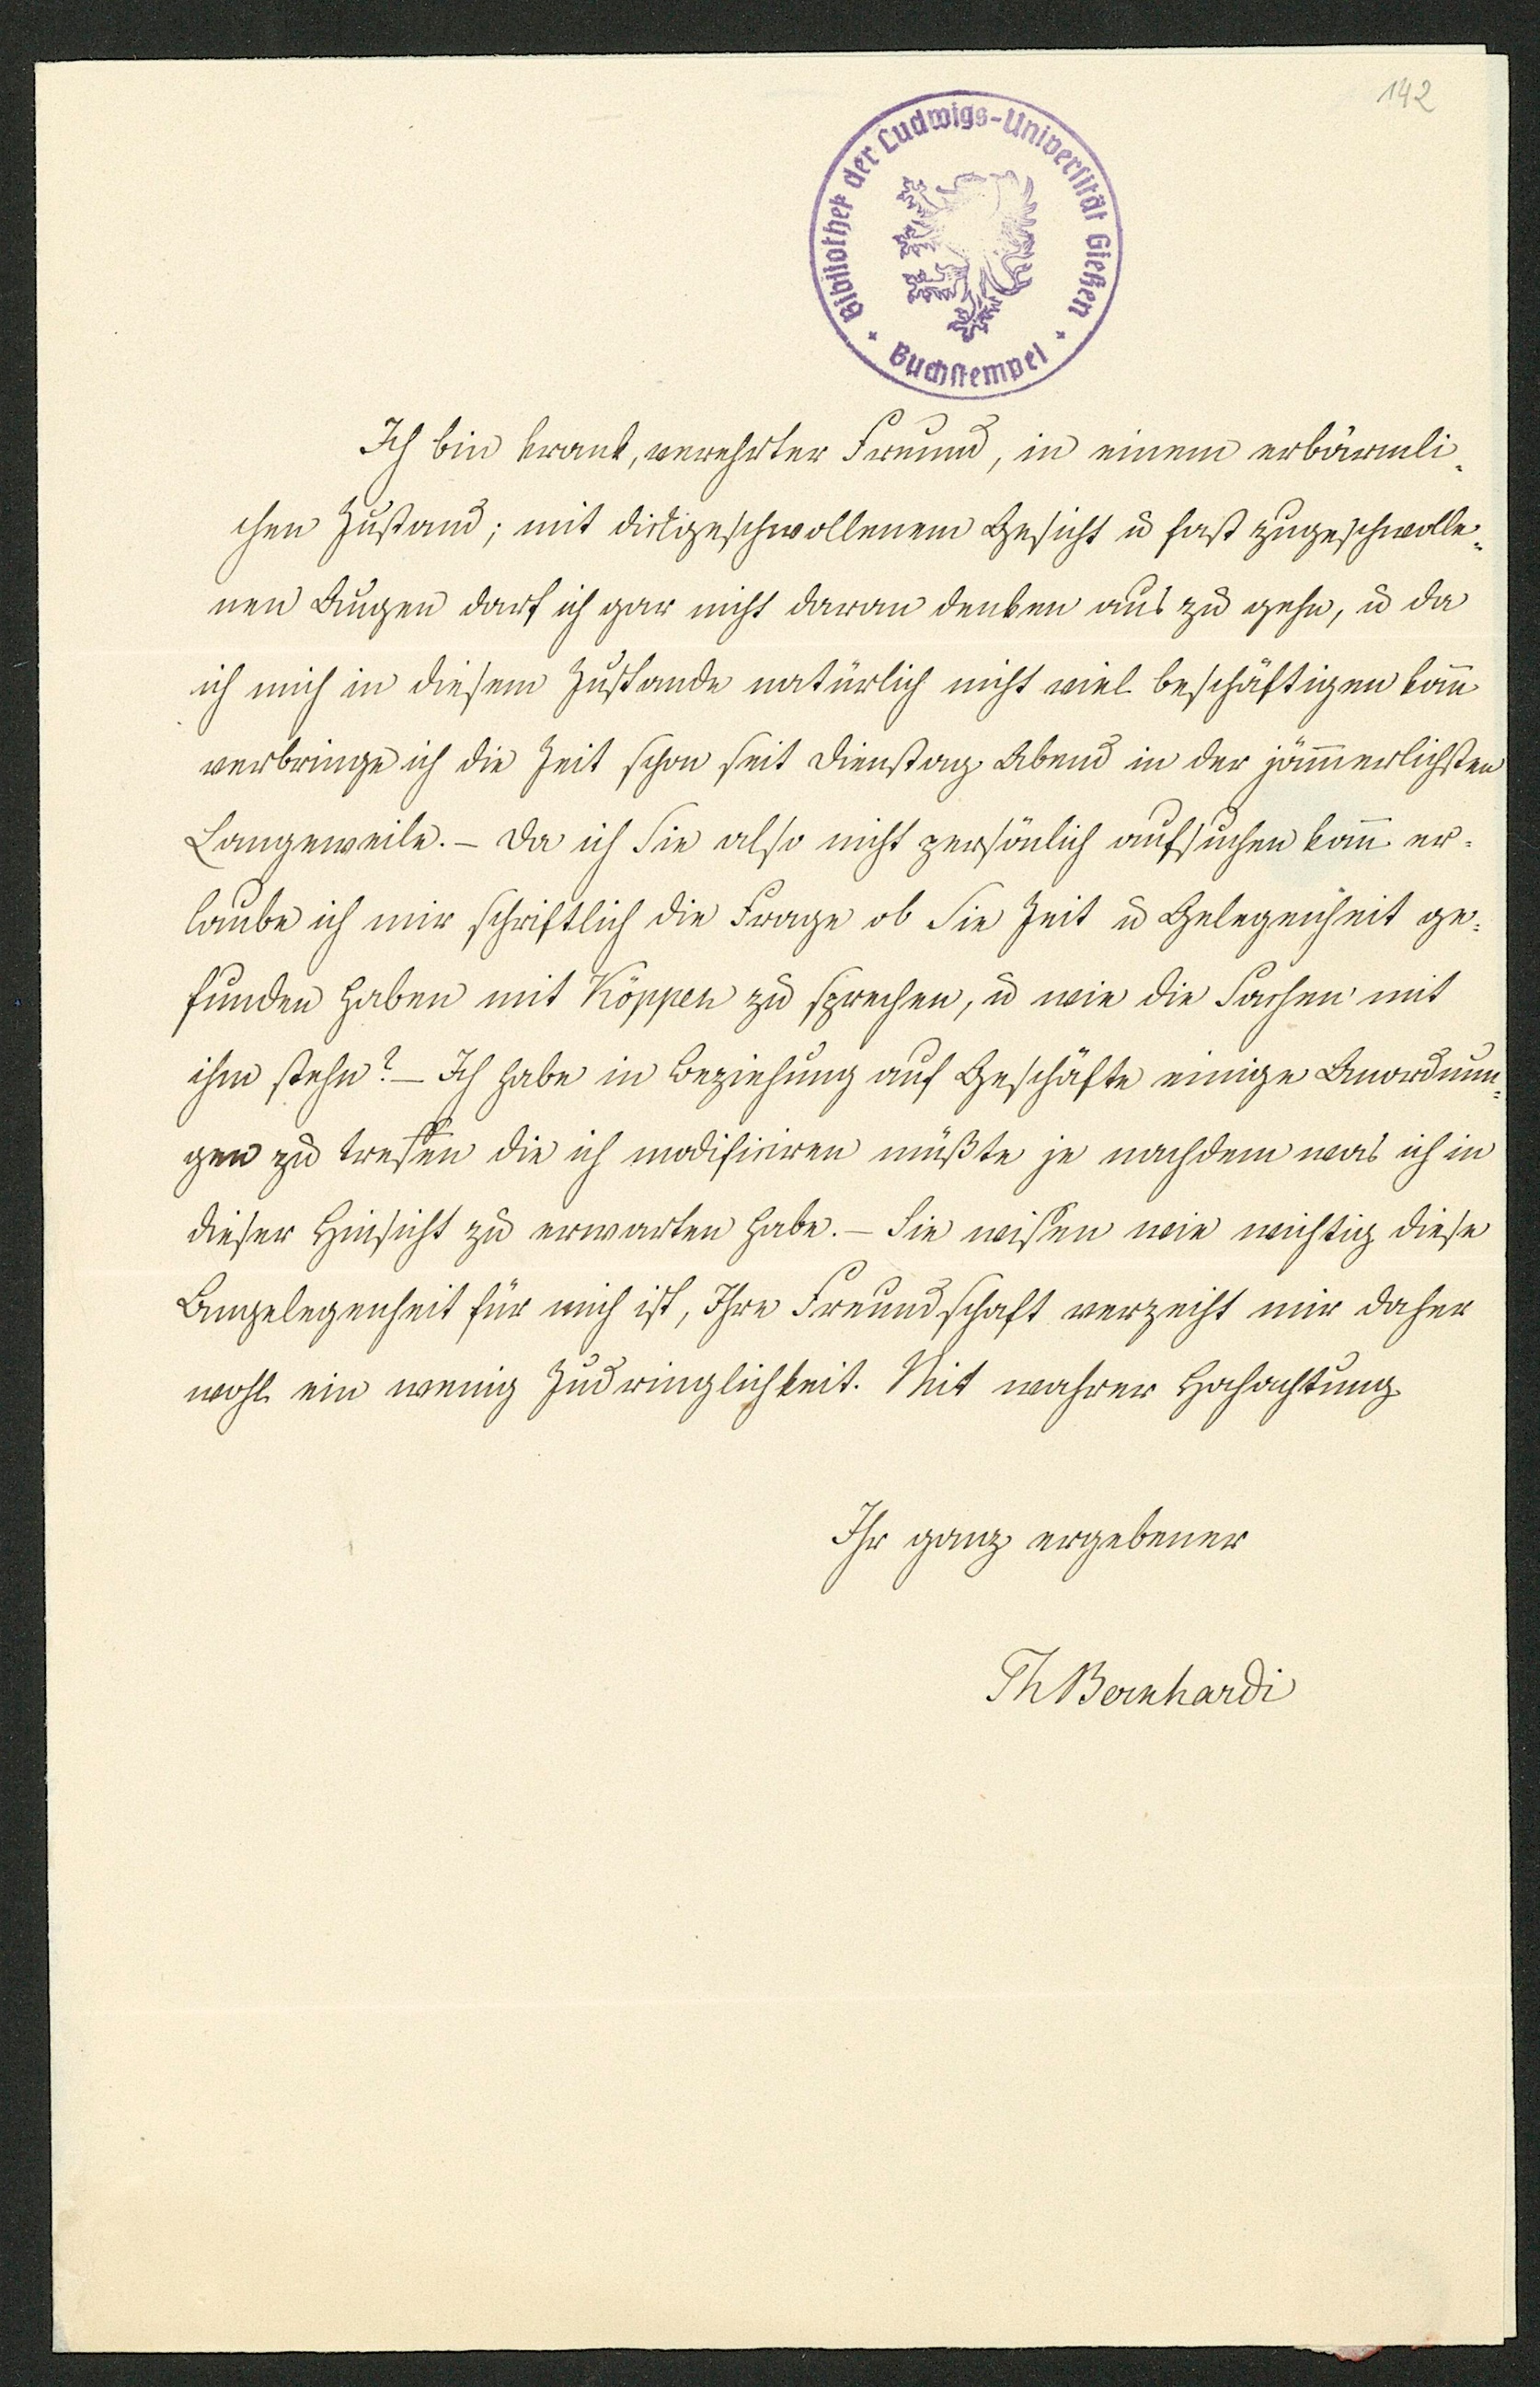 142
Bibliothek der Ludwigs-Universität Gießen
Buchstempel
Ich bin krank, verehrter Freund, in einem erbärmli-
chen Zustand; mit dickgeschwollenem Gesicht u fast zugeschwolle-
nen Augen darf ich gar nicht daran denken aus zu gehn, u da
ich mich in diesem Zustande natürlich nicht viel beschäftigen kan̄
verbringe ich die Zeit schon seit Dienstag Abend in der jäm̄erlichsten
Langeweile. – Da ich Sie also nicht persönlich aufsuchen kan̄ er-
laube ich mir schriftlich die Frage ob Sie Zeit u Gelegenheit ge-
funden haben mit Köppen zu sprechen, u wie die Sachen mit
ihm stehn? – Ich habe in Beziehung auf Geschäfte einige Anordnun-
gen zu treffen die ich modificiren müßte je nachdem was ich in
dieser Hinsicht zu erwarten habe. – Sie wissen wie wichtig diese
Angelegenheit für mich ist, Ihre Freundschaft verzeiht mir daher
wohl ein wenig Zudringlichkeit. Mit wahrer Hochachtung
Ihr ganz ergebener
Th Bernhardi